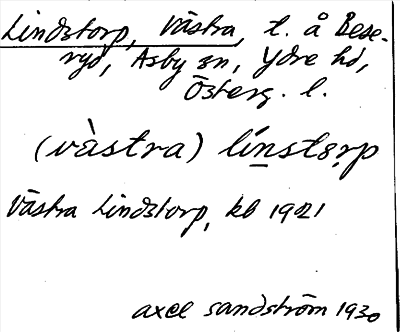 Lindstorp, Västra, t. å Bese-
ryd, Asby sn, Ydre hd,
Österg. l.
(vàstra) liństọrp
Västra Lindstorp, kb 1921
Axel Sandström 1930